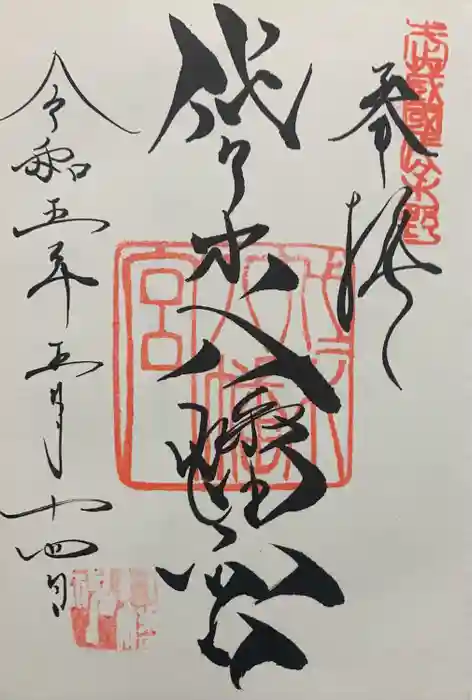 武蔵國代々木野
奉拝
代々木八幡宮
代々木八幡宮
令和五年五月十四日